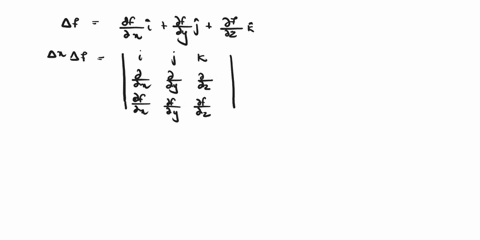 Δf = ∂f/∂x î + ∂f/∂y ĵ + ∂f/∂z k̂
Δx Δf = | i j k |
| ∂/∂x ∂/∂y ∂/∂z |
| ∂f/∂x ∂f/∂y ∂f/∂z |